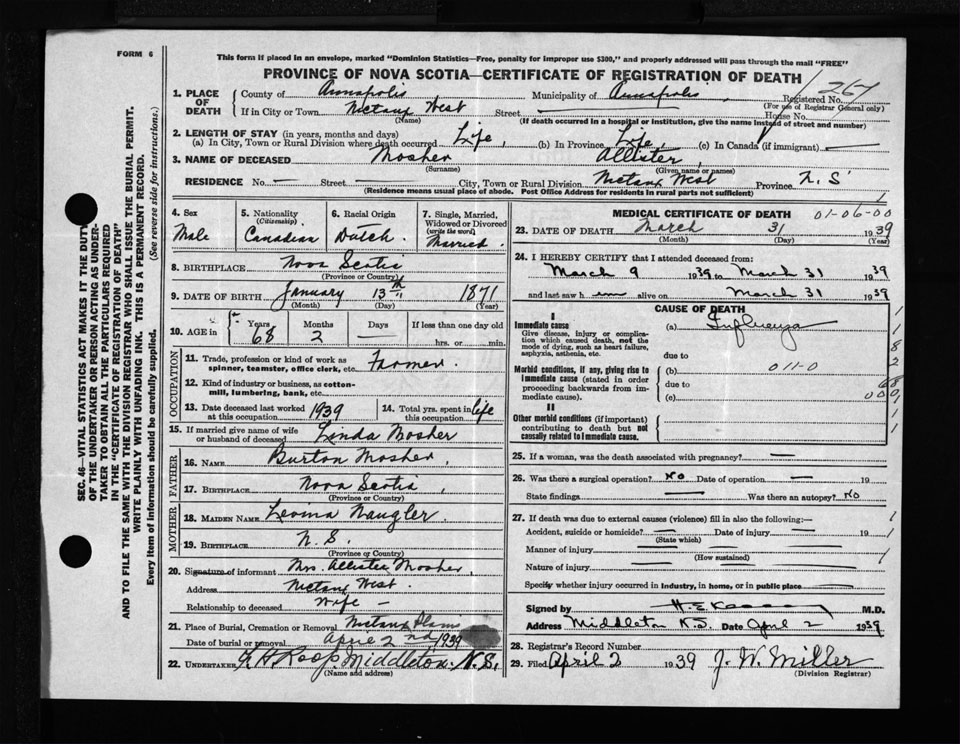 FORM 6
This form if placed in an envelope, marked "Dominion Statistics—Free, penalty for improper use $300," and properly addressed will pass through the mail "FREE"
PROVINCE OF NOVA SCOTIA—CERTIFICATE OF REGISTRATION OF DEATH
1. PLACE OF DEATH
County of Annapolis Municipality of Annapolis, Registered No. 267
(For use of Registrar General only)
If in City or Town Nictaux West Street — House No.
(Name) (If death occurred in a hospital or institution, give the name instead of street and number)
2. LENGTH OF STAY (in years, months and days)
(a) In City, Town or Rural Division where death occurred Life, (b) In Province Life, (c) In Canada (if immigrant) —
3. NAME OF DECEASED Mosher Allister,
(Surname) (Given name or names)
RESIDENCE No. — Street — City, Town or Rural Division Nictaux West Province N. S.
(Residence means usual place of abode. Post Office Address for residents in rural parts not sufficient)
4. Sex Male
5. Nationality (Citizenship) Canadian
6. Racial Origin Dutch.
7. Single, Married, Widowed or Divorced (write the word) Married
8. BIRTHPLACE Nova Scotia
(Province or Country)
9. DATE OF BIRTH January 13th 1871
(Month) (Day) (Year)
10. AGE in Years 68 Months 2 Days — If less than one day old hrs. or min.
OCCUPATION
11. Trade, profession or kind of work as spinner, teamster, office clerk, etc. Farmer.
12. Kind of industry or business, as cotton-mill, lumbering, bank, etc.
13. Date deceased last worked at this occupation 1939
14. Total yrs. spent in this occupation life
15. If married give name of wife or husband of deceased Linda Mosher
FATHER
16. NAME Burton Mosher,
17. BIRTHPLACE Nova Scotia,
(Province or Country)
MOTHER
18. MAIDEN NAME Leoma Naugler
19. BIRTHPLACE N. S.
(Province or Country)
20. Signature of informant Mrs. Allister Mosher,
Address Nictaux West.
Relationship to deceased Wife —
21. Place of Burial, Cremation or Removal Nictaux Plains
Date of burial or removal April 2nd 1939
22. UNDERTAKER Middleton. N.S.
(Name and address)
MEDICAL CERTIFICATE OF DEATH 01-06-00
23. DATE OF DEATH March 31 1939
(Month) (Day) (Year)
24. I HEREBY CERTIFY that I attended deceased from:
March 9 1939 to March 31 1939
and last saw h im alive on March 31 1939
CAUSE OF DEATH
I
Immediate cause
Give disease, injury or complication which caused death, not the mode of dying, such as heart failure, asphyxia, asthenia, etc.
(a) Influenza
due to
Morbid conditions, if any, giving rise to immediate cause (stated in order proceeding backwards from immediate cause).
(b) 011-0
due to
(c)
II
Other morbid conditions (if important) contributing to death but not causally related to immediate cause.
25. If a woman, was the death associated with pregnancy? —
26. Was there a surgical operation? No Date of operation — 19
State findings — Was there an autopsy? No
27. If death was due to external causes (violence) fill in also the following:—
Accident, suicide or homicide? — Date of injury — 19
(State which)
Manner of injury —
(How sustained)
Nature of injury —
Specify whether injury occurred in industry, in home, or in public place
Signed by M.D.
Address Middleton N.S. Date April 2 1939
28. Registrar's Record Number
29. Filed April 2 1939 J. W. Miller
(Division Registrar)
SEC. 46—VITAL STATISTICS ACT MAKES IT THE DUTY
OF THE UNDERTAKER OR PERSON ACTING AS UNDER-
TAKER TO OBTAIN ALL THE PARTICULARS REQUIRED
IN THE "CERTIFICATE OF REGISTRATION OF DEATH"
AND TO FILE THE SAME WITH THE DIVISION REGISTRAR WHO SHALL ISSUE THE BURIAL PERMIT.
WRITE PLAINLY WITH UNFADING INK. THIS IS A PERMANENT RECORD.
Every item of information should be carefully supplied. (See reverse side for instructions.)